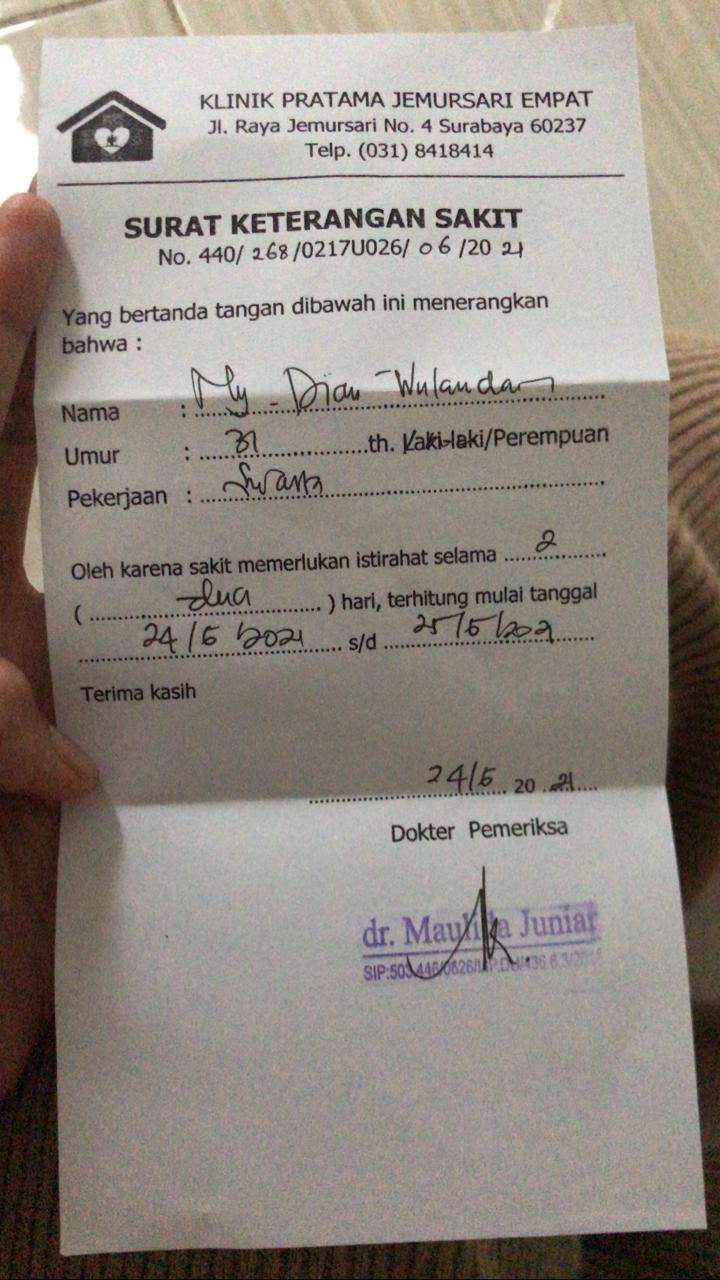 KLINIK PRATAMA JEMURSARI EMPAT
Jl. Raya Jemursari No. 4 Surabaya 60237
Telp. (031) 8418414
SURAT KETERANGAN SAKIT
No. 440/ 268 /0217U026/ 06 /20 21
Yang bertanda tangan dibawah ini menerangkan
bahwa :
Nama : Ny. Dian Wulandari
Umur : 31 th. Laki-laki/Perempuan
Pekerjaan : Swasta
Oleh karena sakit memerlukan istirahat selama 2
( dua ) hari, terhitung mulai tanggal
24/6/2021 s/d 25/6/2021
Terima kasih
24/6 20 21
Dokter Pemeriksa
dr. Maulida Juniar